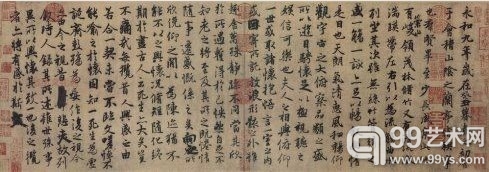 永和九年歲在癸丑暮春之初會
于會稽山陰之蘭亭脩稧事
也羣賢畢至少長咸集此地
有崇山峻領茂林脩竹又有清流激
湍暎帶左右引以為流觴曲水
列坐其次雖無絲竹管弦之
盛一觴一詠亦足以暢敘幽情
是日也天朗氣清惠風和暢仰
觀宇宙之大俯察品類之盛
所以遊目騁懷足以極視聽之
娛信可樂也夫人之相與俯仰
一世或取諸懷抱悟言一室之內
或因寄所託放浪形骸之外雖
趣舍萬殊靜躁不同當其欣
於所遇蹔得於己怏然自足不
知老之將至及其所之既惓情
隨事遷感慨係之矣向之所
欣俛仰之閒以為陳迹猶不
能不以之興懷況脩短隨化終
期於盡古人云死生亦大矣豈
不痛哉每攬昔人興感之由
若合一契未嘗不臨文嗟悼不
能喻之於懷固知一死生為虛
誕齊彭殤為妄作後之視今
亦由今之視昔悲夫故列
敘時人錄其所述雖世殊事
異所以興懷其致一也後之攬
者亦將有感於斯文
99艺术网
99ys.com